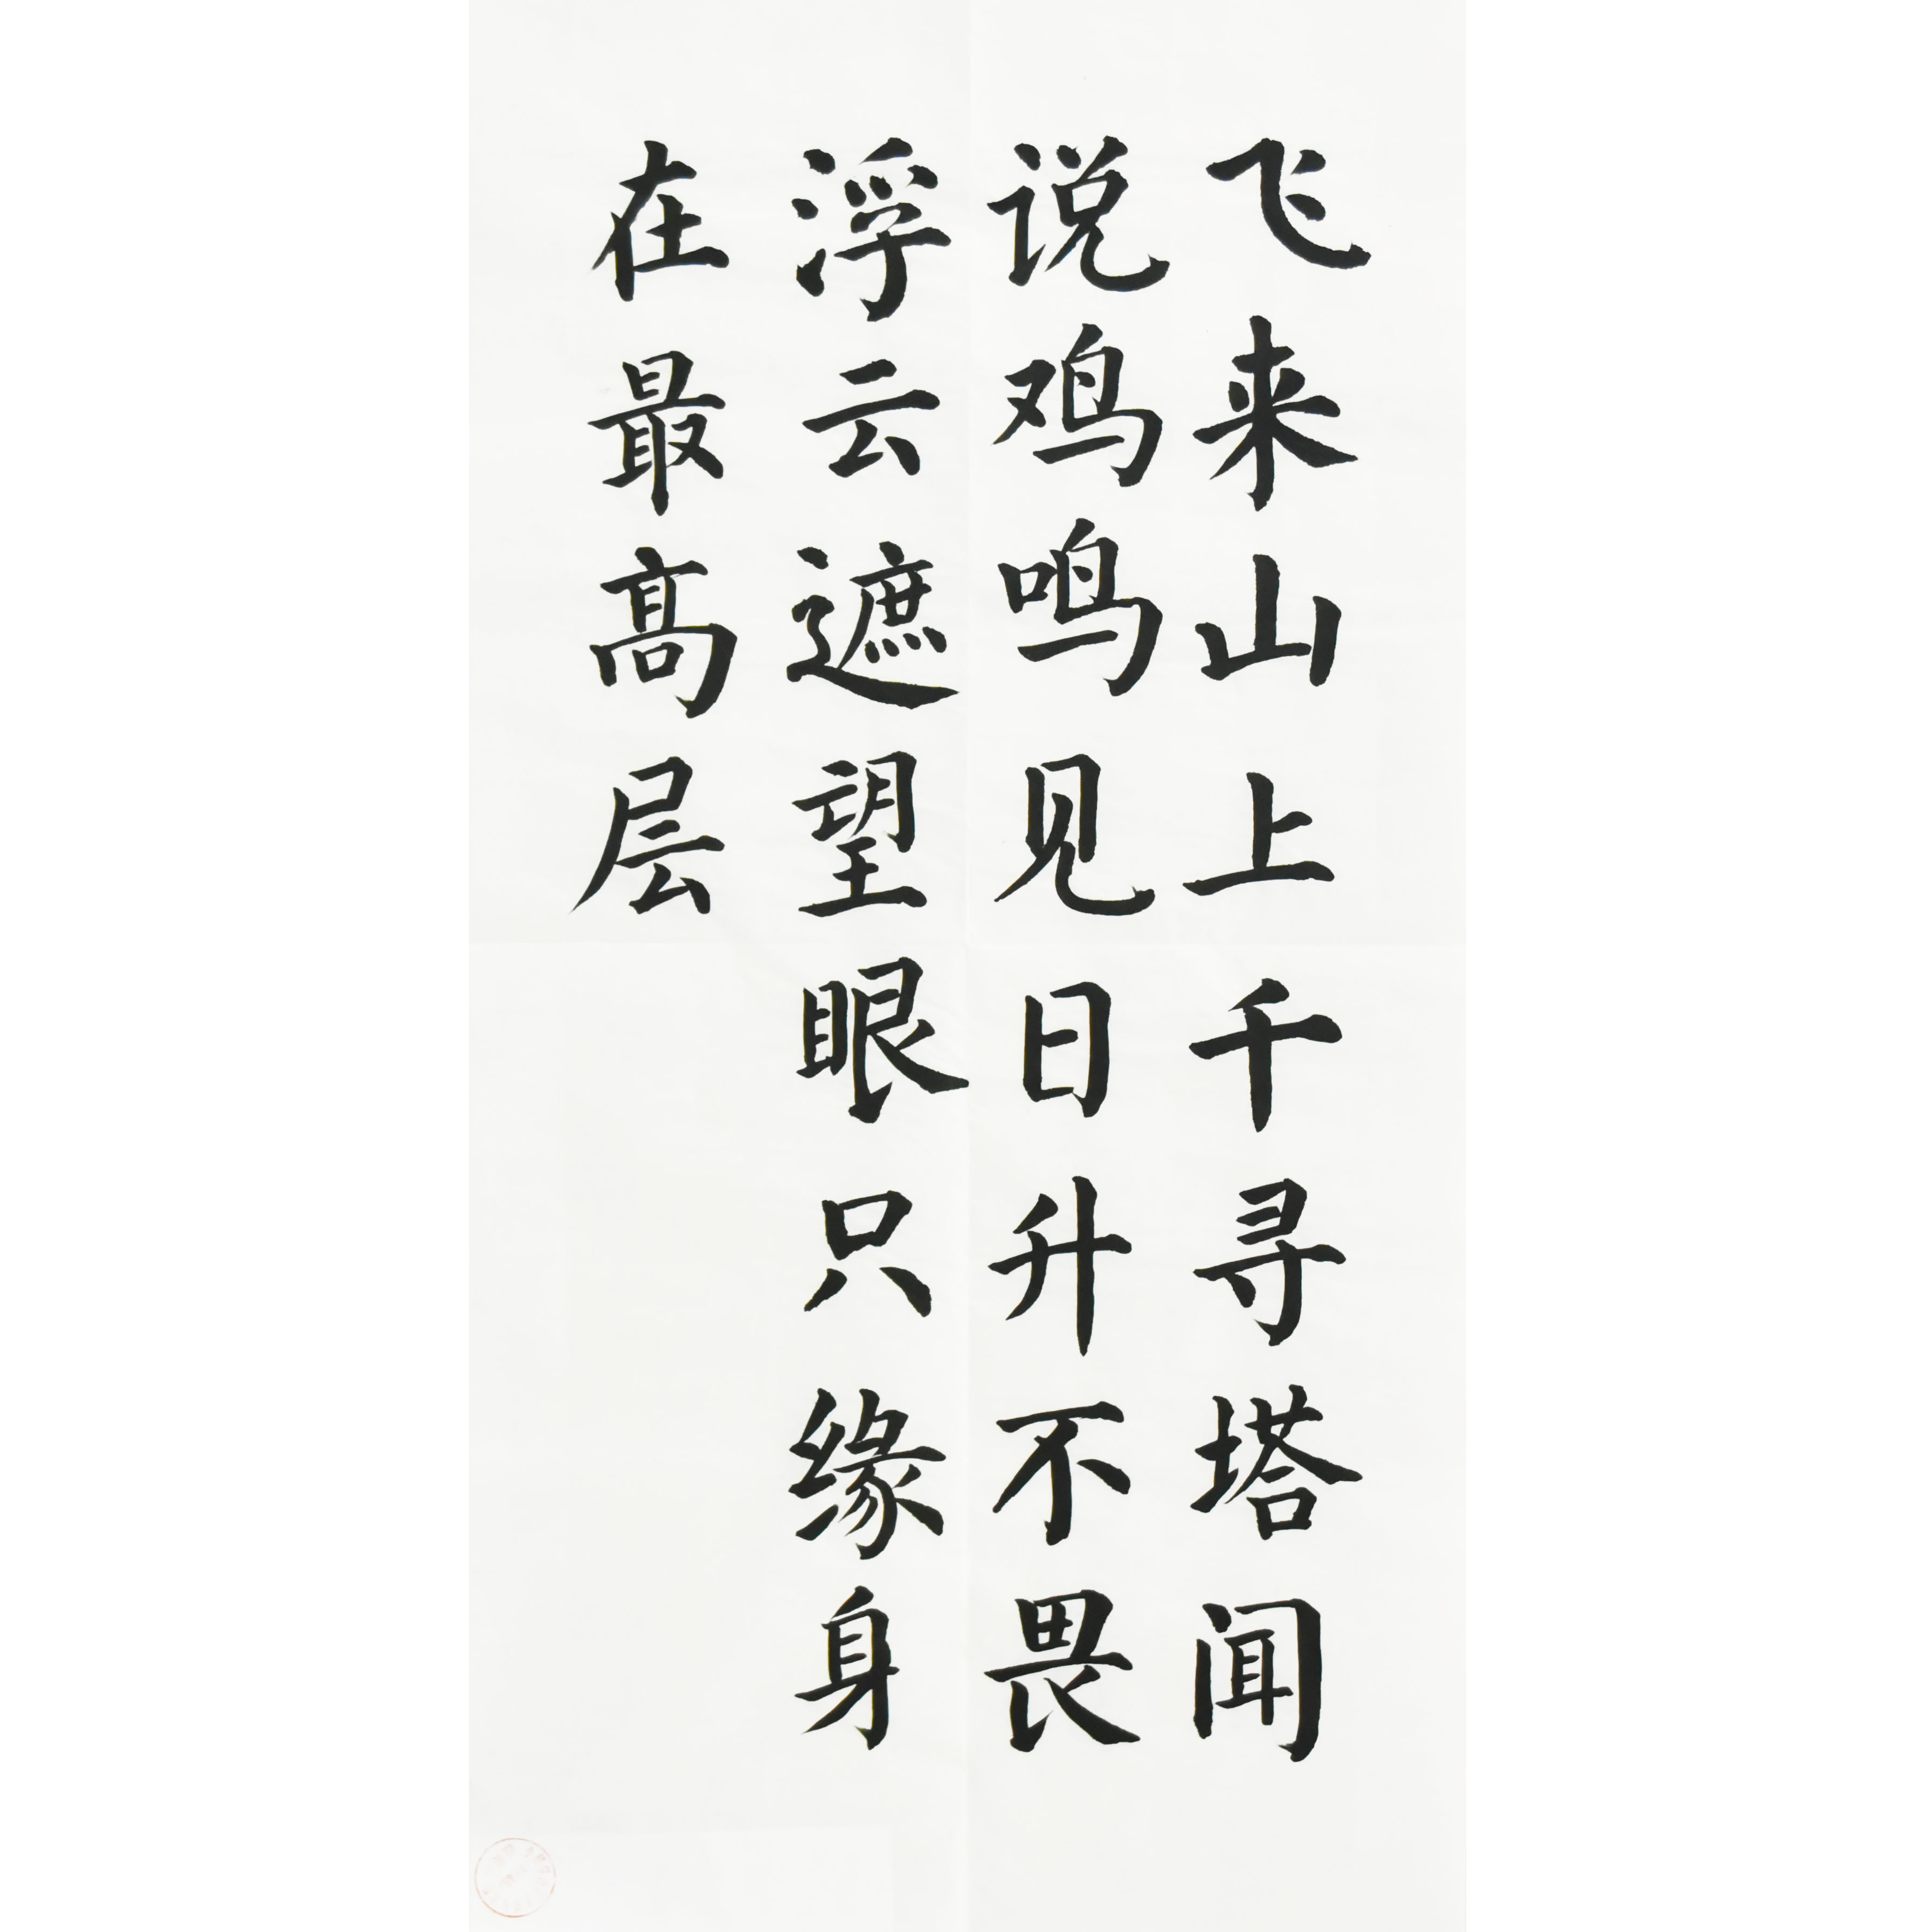 飞来山上千寻塔闻
说鸡鸣见日升不畏
浮云遮望眼只缘身
在最高层